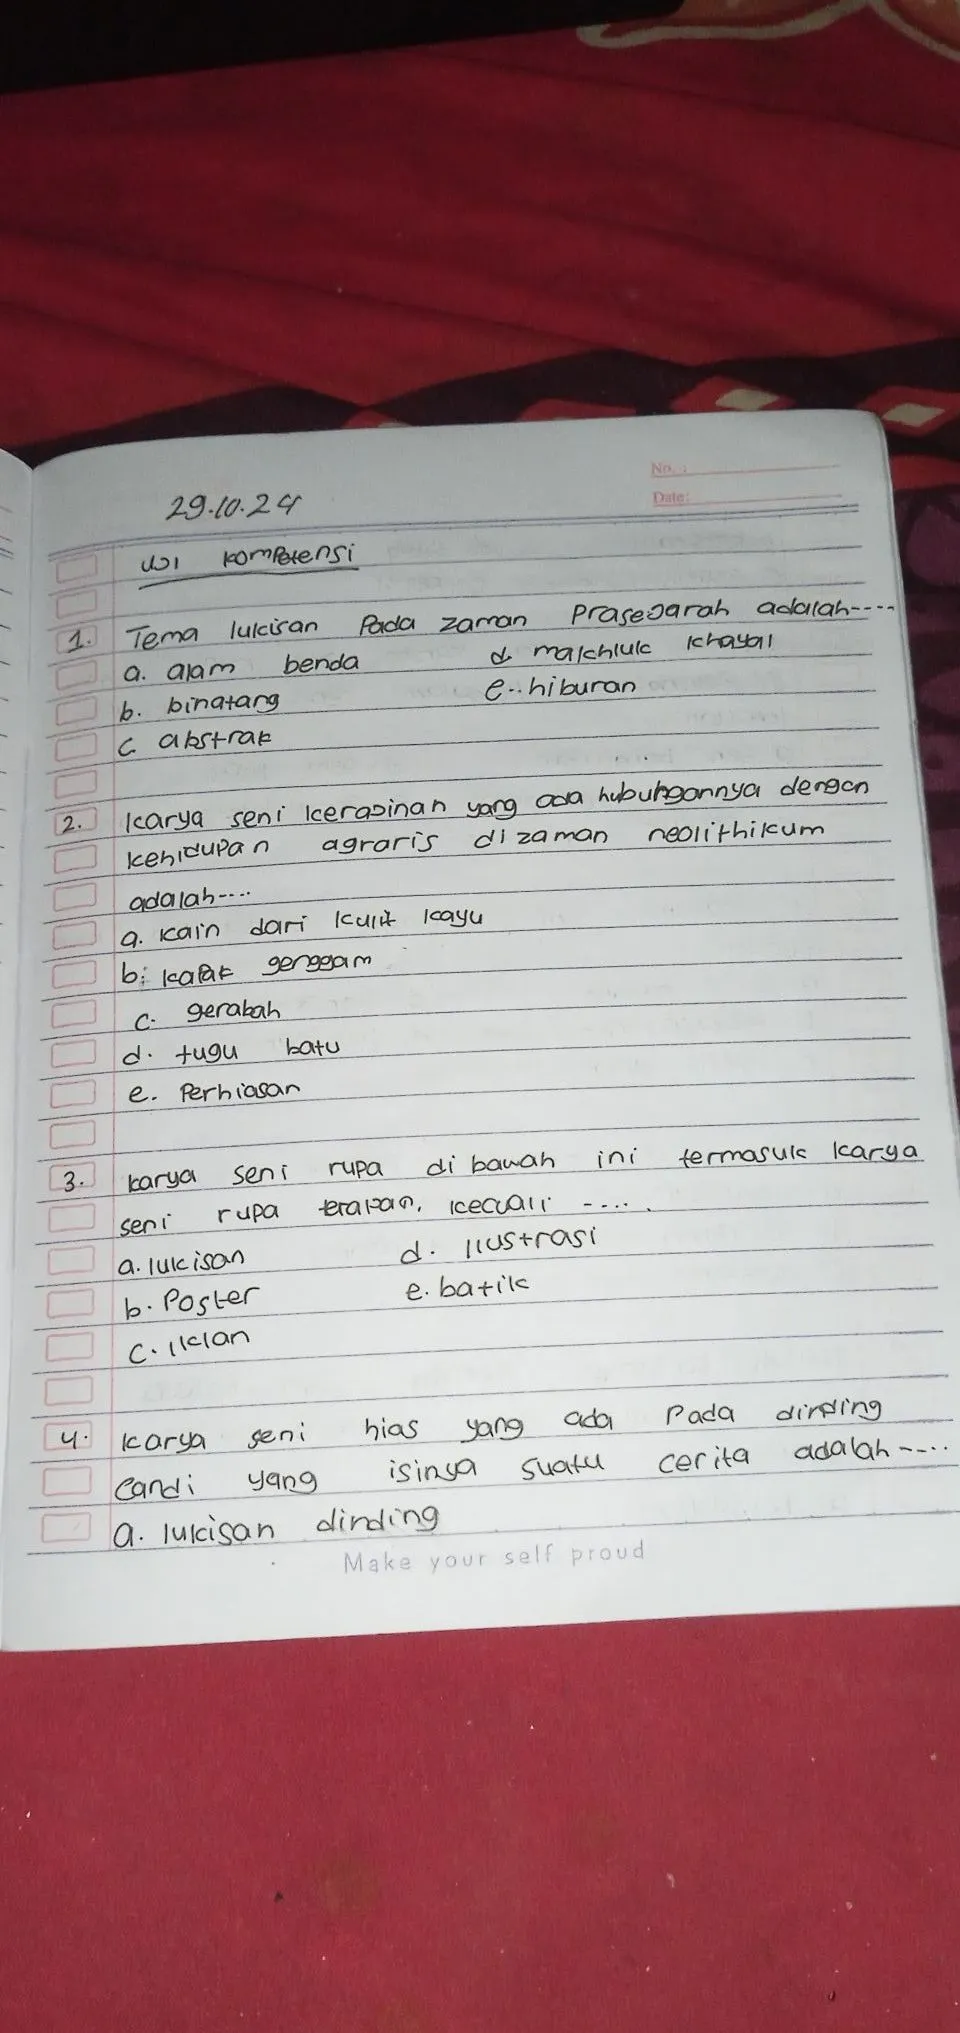 No. :
Date:
29.10.24
Uji kompetensi
1. Tema lukisan Pada zaman Prasejarah adalah----
a. alam benda d. makhluk khayal
b. binatang e. hiburan
c abstrak
2. karya seni kerajinan yang ada hubungannya dengan
kehidupan agraris di zaman neolithikum
adalah----
a. kain dari kulit kayu
b. kapak genggam
c. gerabah
d. tugu batu
e. Perhiasan
3. karya seni rupa di bawah ini termasuk karya
seni rupa terapan, kecuali ----.
a. lukisan d. ilustrasi
b. Poster e. batik
c. iklan
4. karya seni hias yang ada Pada dinding
candi yang isinya suatu cerita adalah----
a. lukisan dinding
Make your self proud